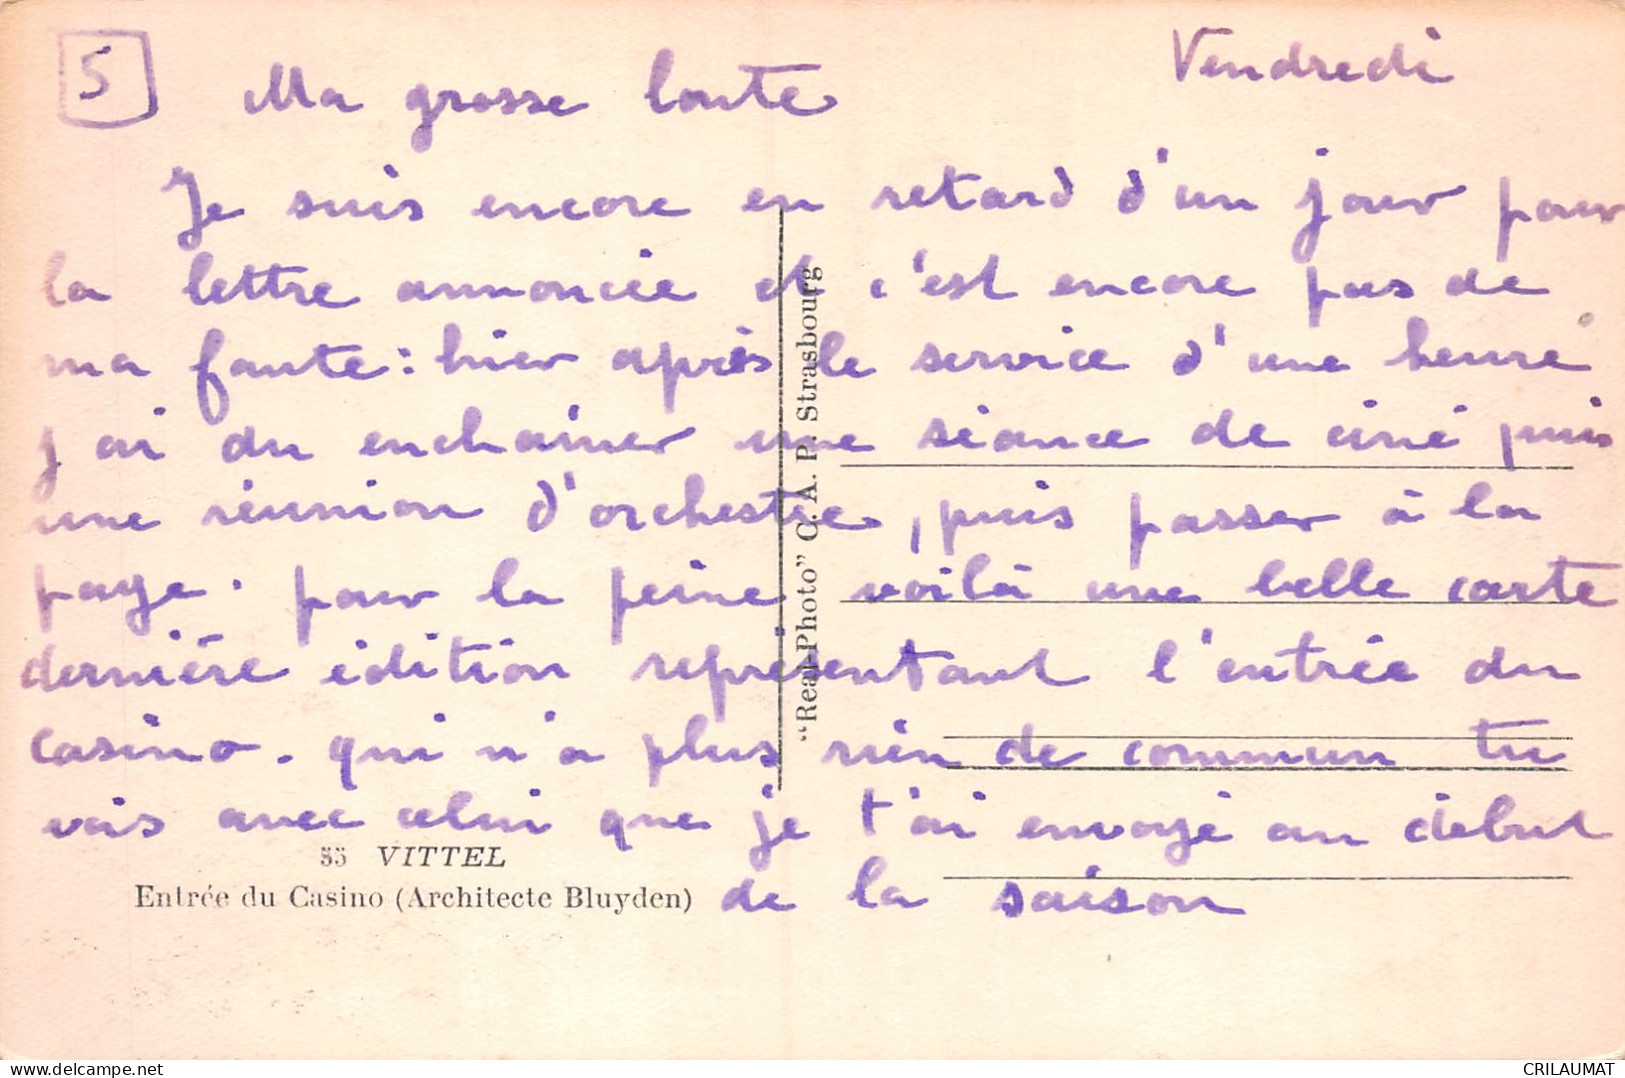 5
Vendredi
Ma grosse loute
Je suis encore en retard d'un jour pour
la lettre annoncée et c'est encore pas de
ma faute : hier après le service d'une heure
j'ai du enchainer une séance de ciné puis
une réunion d'orchestre, puis passer à la
paye. pour la peine voilà une belle carte
dernière édition représentant l'entrée du
casino. qui n'a plus rien de commun tu
vois avec celui que je t'ai envoyé au début
de la saison
55 VITTEL
Entrée du Casino (Architecte Bluyden)
"Real-Photo" C. A. P. Strasbourg
delcampe.net
CRILAUMAT